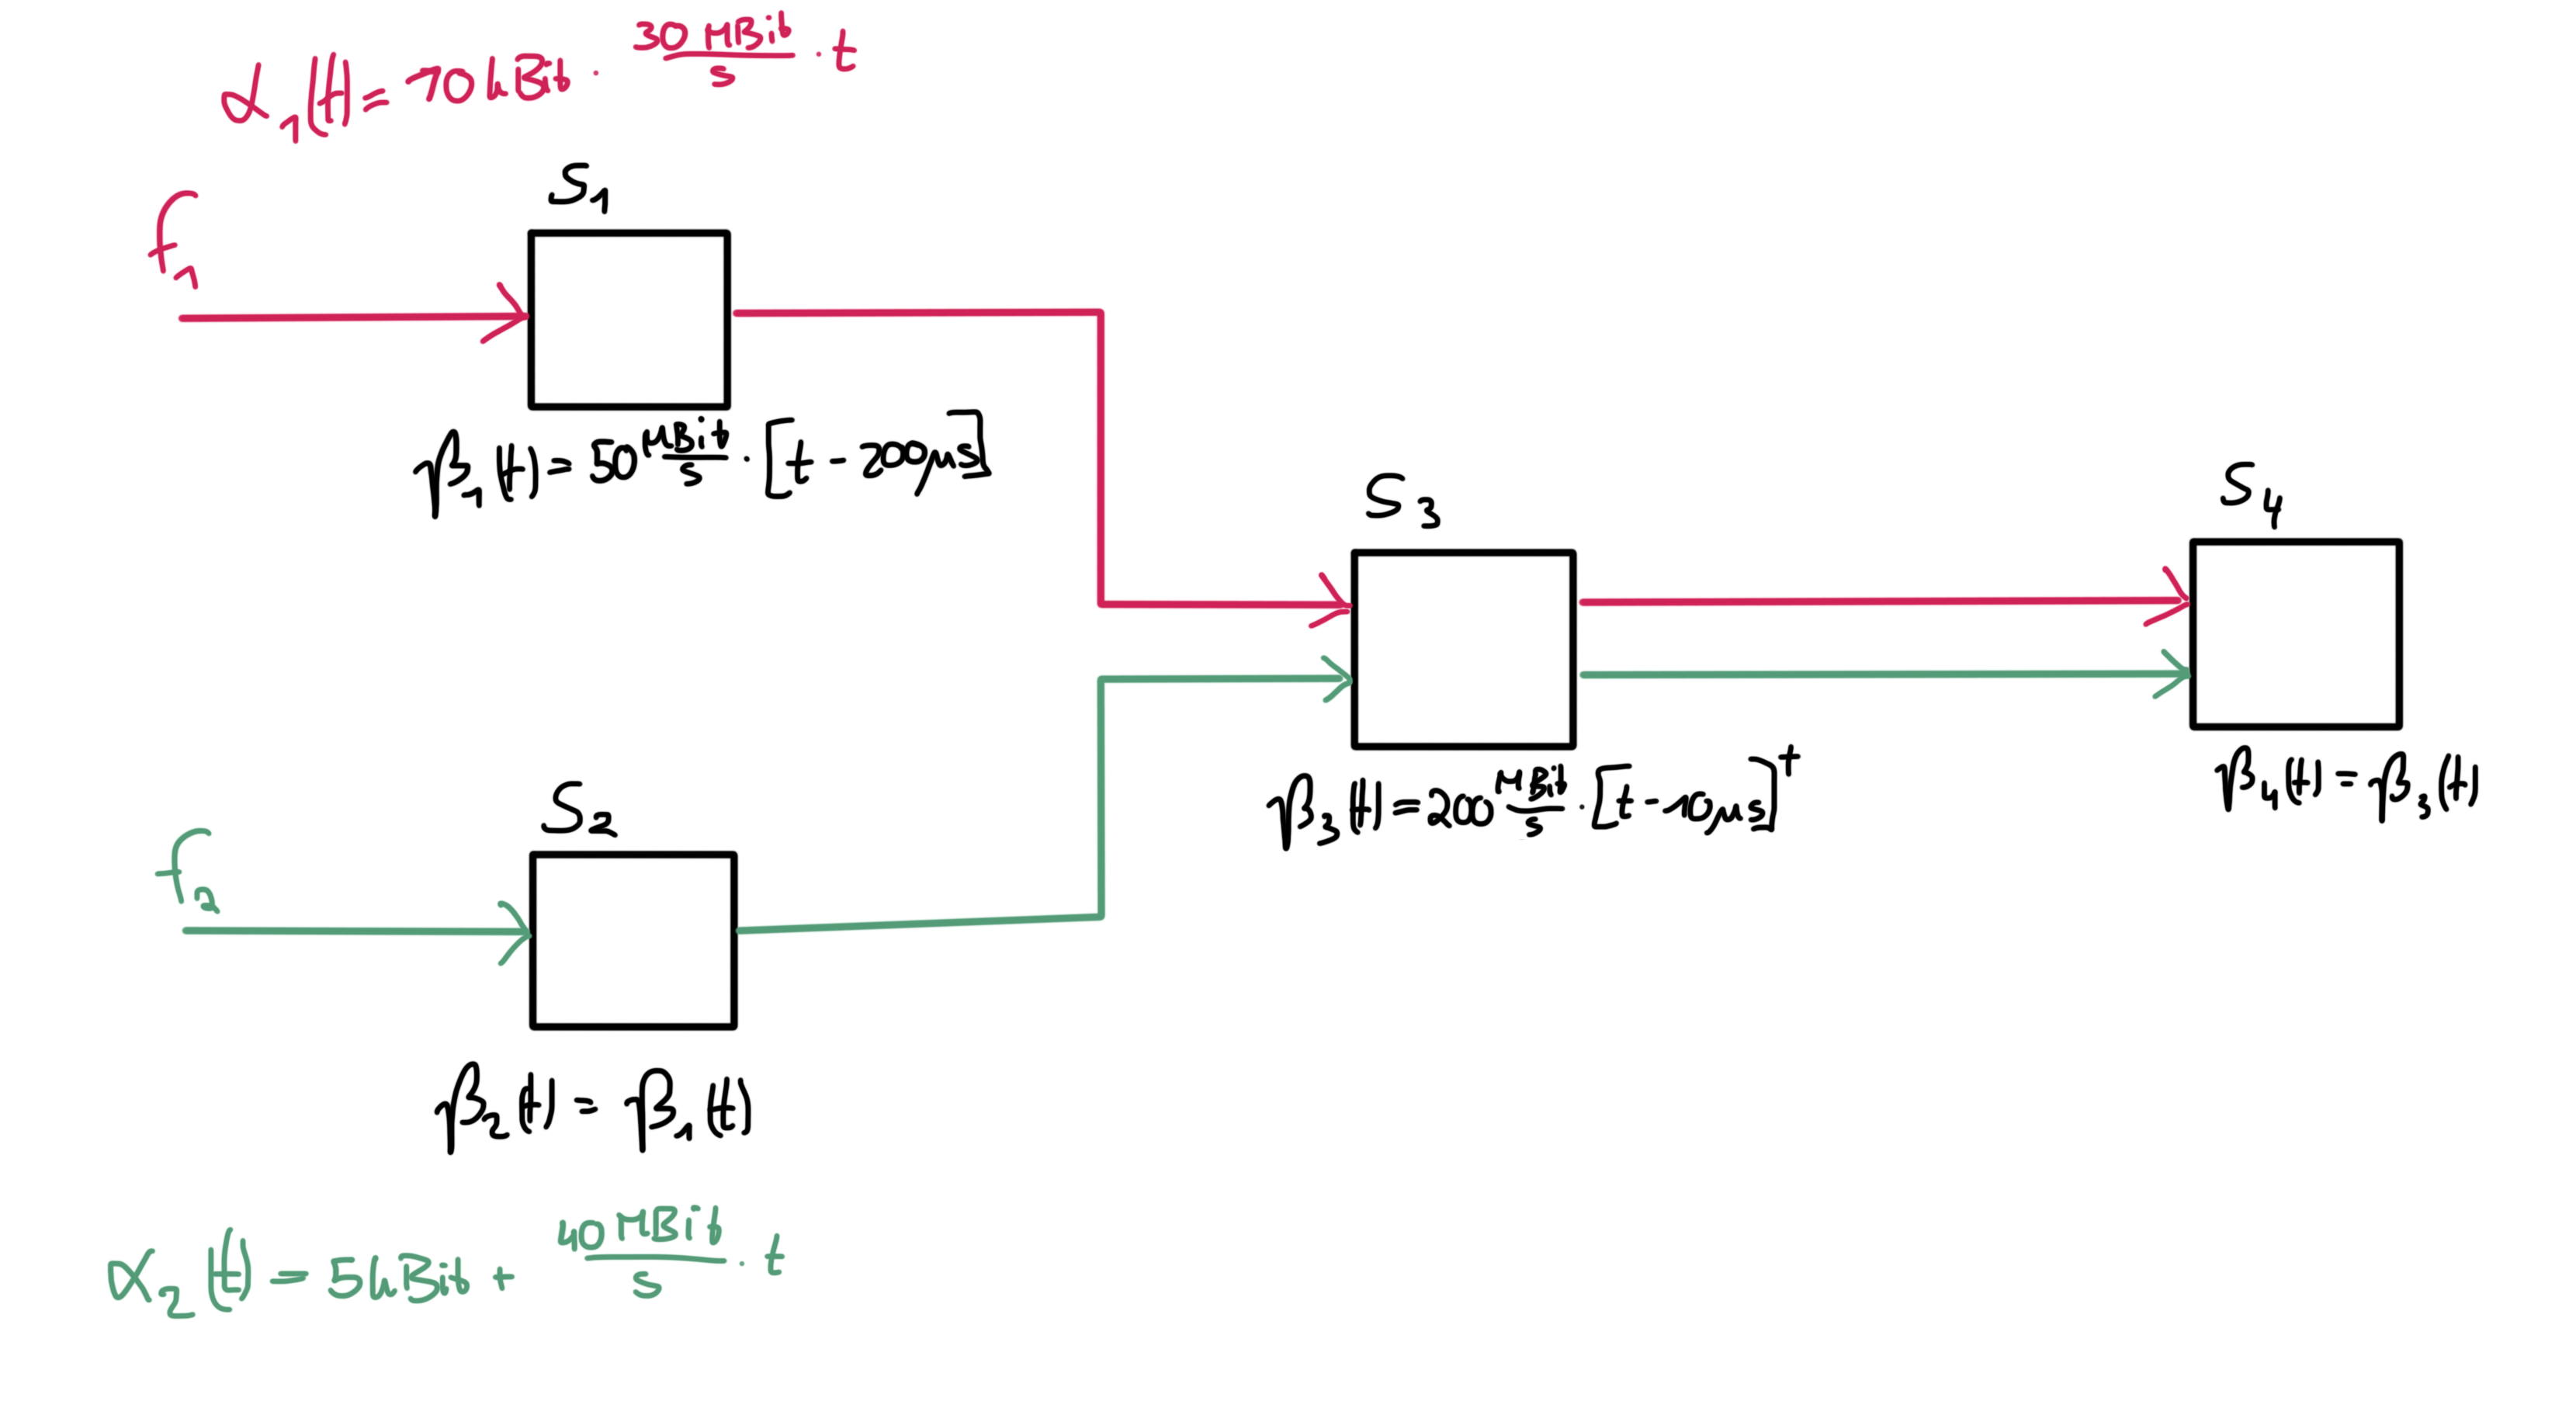 α₁(t) = 10 kBit · 30 MBit/s · t
S₁
f₁
β₁(t) = 50 MBit/s · [t - 200µs]
S₃
S₄
β₃(t) = 200 MBit/s · [t - 10µs]⁺
β₄(t) = β₃(t)
S₂
f₂
β₂(t) = β₁(t)
α₂(t) = 5 kBit + 40 MBit/s · t